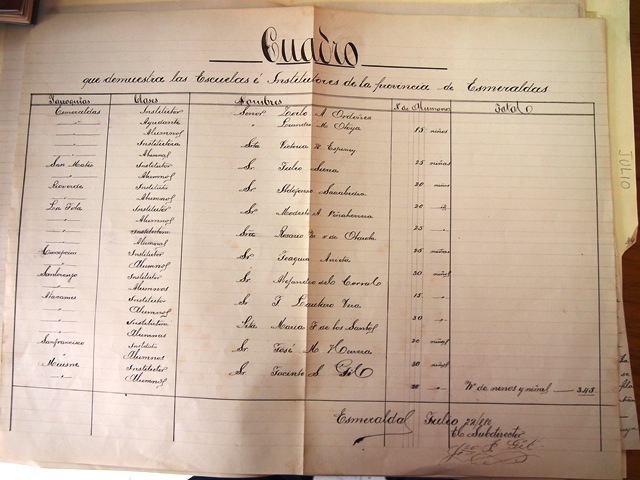 Cuadro
que demuestra las Escuelas é Institutores de la provincia de Esmeraldas
Parroquias Clases Nombres N. de Alumnos Total
Esmeraldas Institutor Señor A Ordoñez
" Ayudante " Leandro Mo Oloya
" Alumnos 15 niños
" Institutora Sta Victoria H
" Alumnas 25 niñas
San Mateo Institutor Sr Julio
" Alumnos 20 niños
Rioverde Institutor Sr Ildefonso
" Alumnos 20 "
La Tola Institutor Sr Modesto A Peñaherrera
" Alumnos 25 "
" Institutora Sra Rosario v de
" Alumnas 25 niñas
Concepcion Institutor Sr Joaquin
" Alumnos 30 niños
Sanlorenzo Institutor Sr Alejandro del Corral
" Alumnos 15 "
Atacames Institutor Sr F Lautaro Vera
" Alumnos 30 "
" Institutora Sta Maria F de los Santos
" Alumnas 20 niñas
Sanfrancisco Institutor Sr José M
" Alumnos 20 niños
Muisne Institutor Sr Jacinto S Gil
" Alumnos N° de niños y niñas 345
Esmeraldas Julio
El Subdirector
JULIO